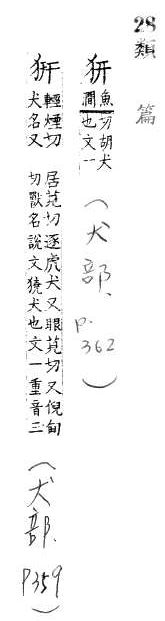 28
類篇
魚澗
切胡犬
也文一
(犬部.
p.362)
輕煙切
犬名又
居莧切逐虎犬又眼莧切又倪甸
切獸名說文獟犬也文一重音三
(犬部.
P359)